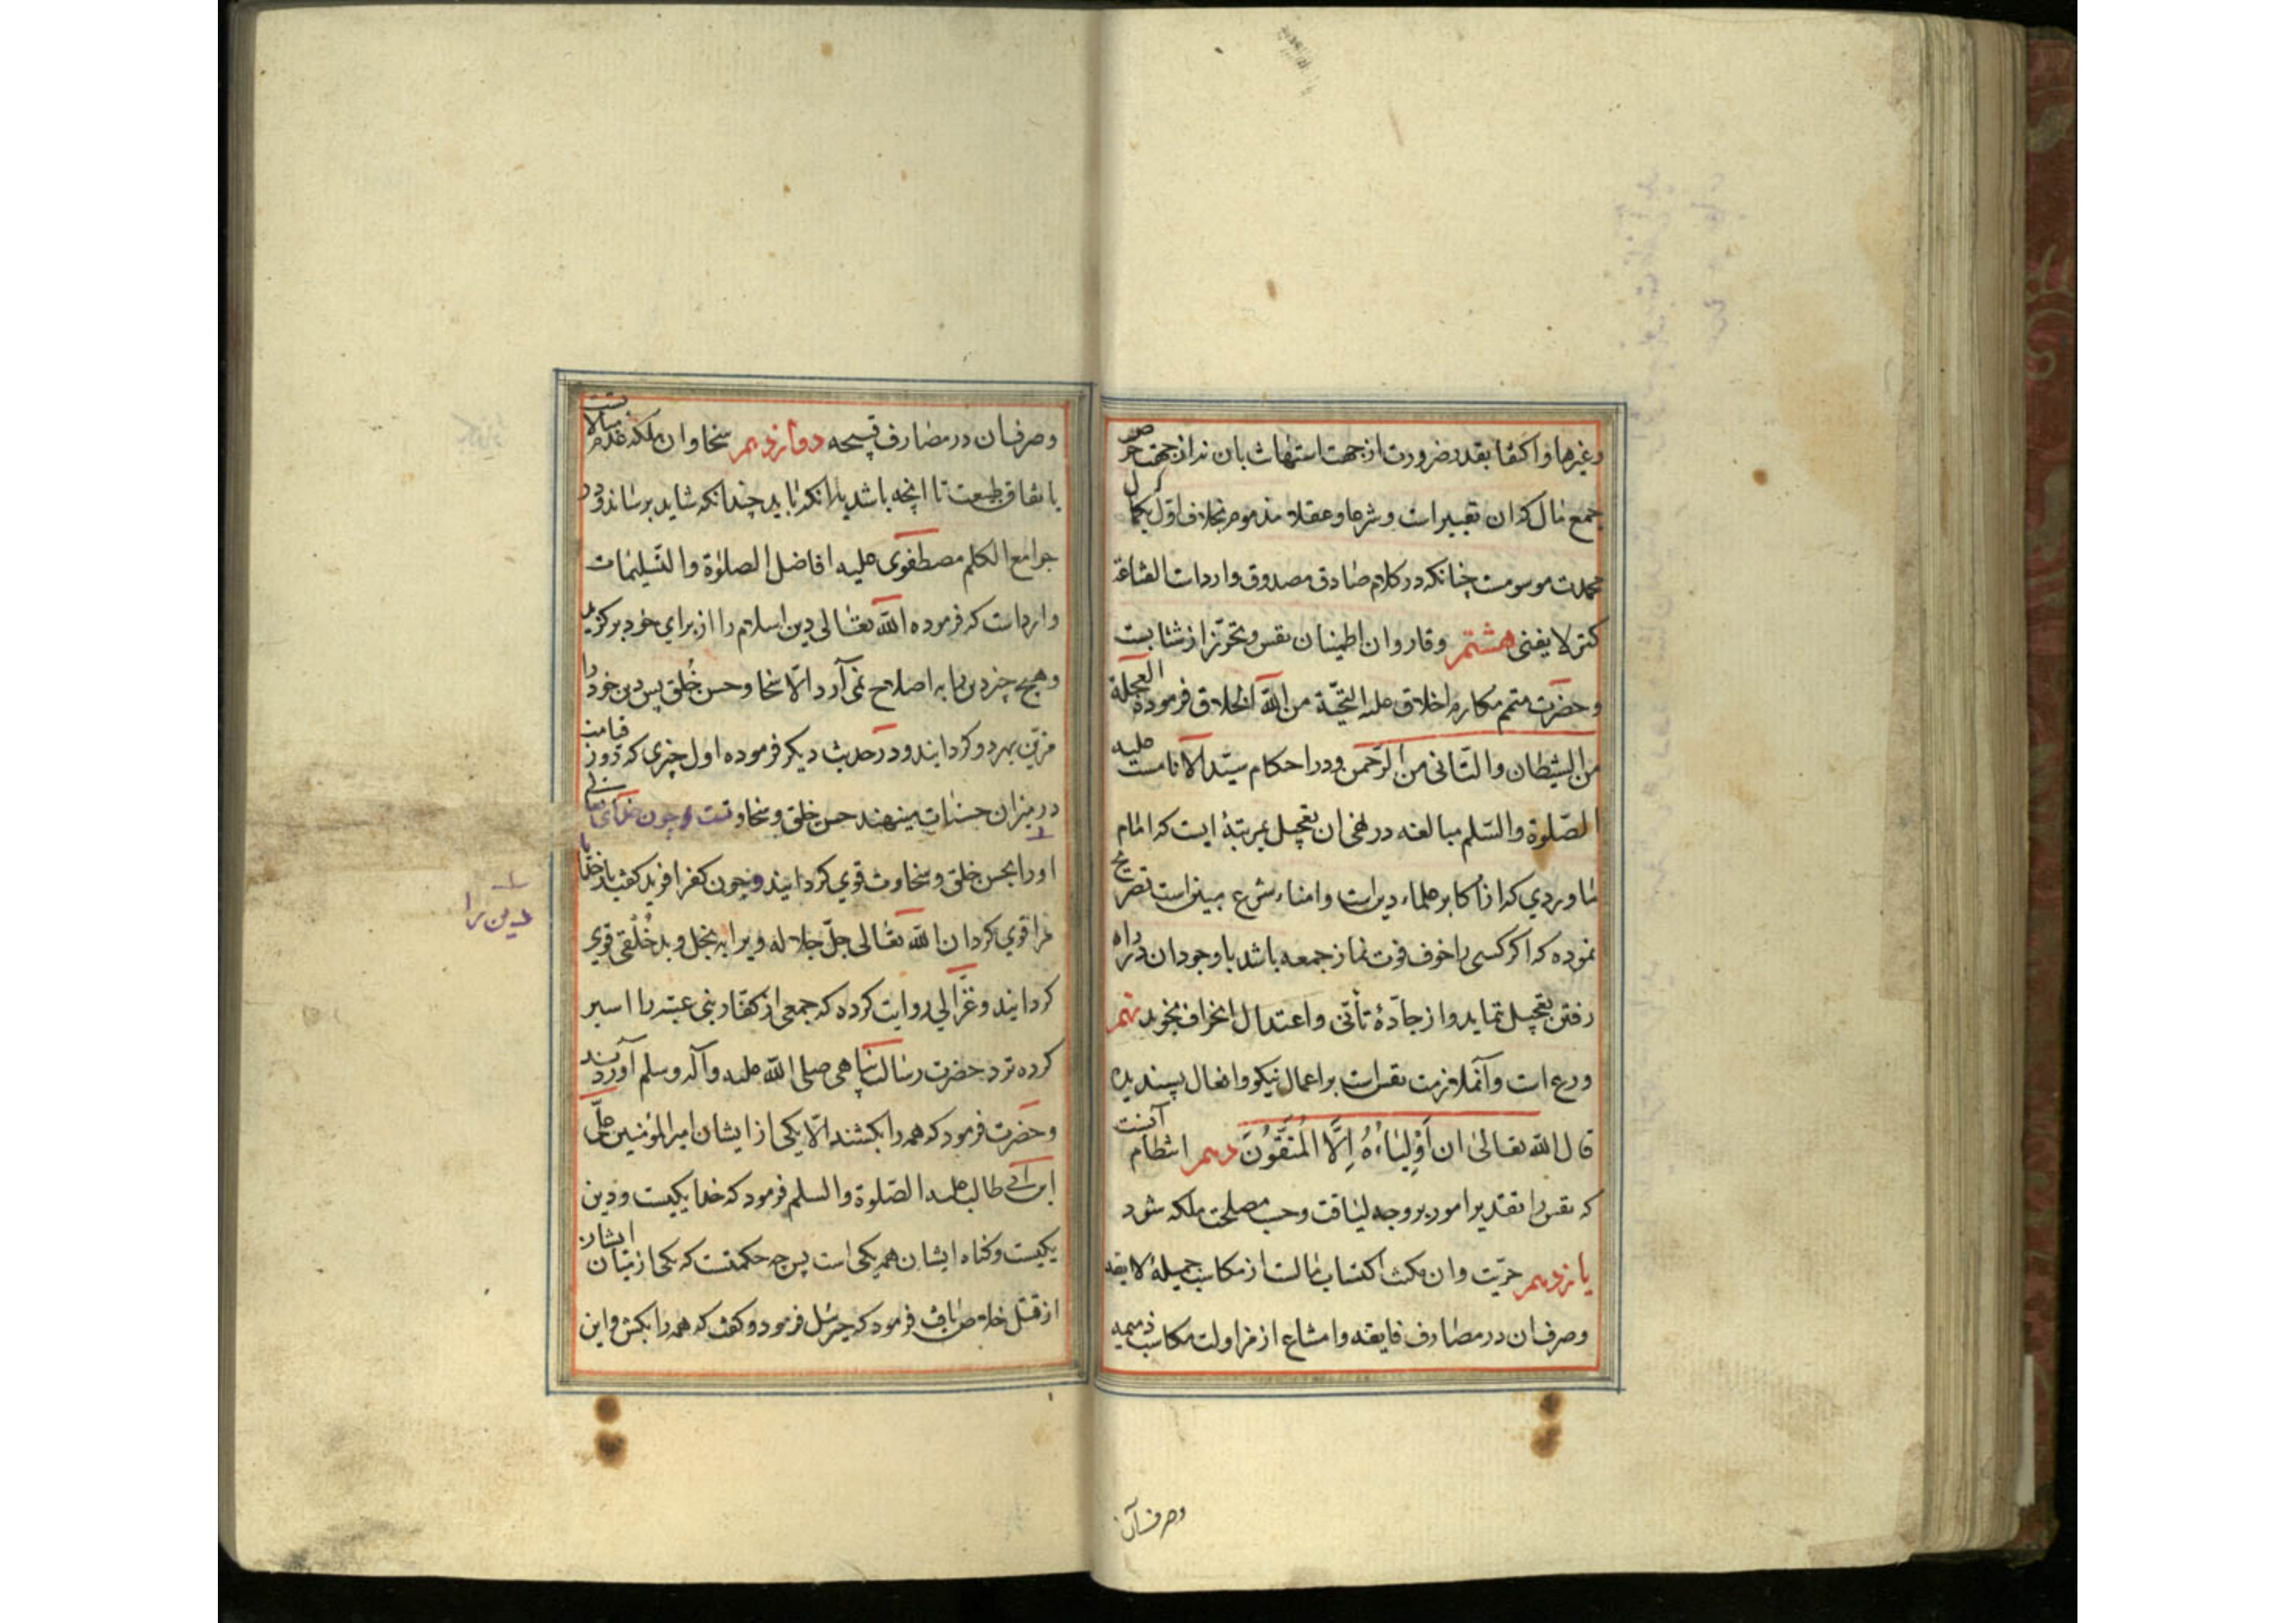 وغیرها و اکتفا بقدر ضرورت از جهت استهانت بان نه از جهت حرص
جمع مال که ان تقتیر است و شرعا و عقلا مذموم بخلاف اول بکمال
محمدت موسومست چنانکه در کلام صادق مصدوق وارد است القناعة
کنز لا یفنی هشتم وقار و ان اطمینان نفس و تحرّز از شتابست
و حضرت متمم مکارم اخلاق علیه التحیّة من الله الخلاق فرموده العجلة
من الشیطان والتانی من الرحمن و در احکام سیّد الانامست علیه
الصّلوة والسّلم مبالغه در نهی ان تعجیل بمرتبهٔ ایست که امام
ماوردی که از اکابر علماء دین است و امناء شرع مبین است تصریح
نموده که اکر کسی را خوف فوت نماز جمعه باشد با وجود ان در راه
رفتن تعجیل ننماید و از جادّهٔ تأنّی و اعتدال انحراف نجوید نهم
ورع است و آن ملازمت نفس است بر اعمال نیکو و افعال پسندیده
قال الله تعالی ان اَوْلِیاءُهُ اِلَّا الْمُتَّقُونَ دهم انتظام آنست
که نفس را تقدیر امور بر وجه لیاقت و حسب مصلحت ملکه شود
یازدهم حرّیت و ان مکنت اکتساب مالست از مکاسب جمیلهٔ لایقه
و صرف ان در مصارف فایقه و امتناع از مزاولت مکاسب ذمیمه
وصرف آن
و صرف ان در مصارف قبیحه دوازدهم سخا و ان ملکه بذل مالست
بانفاق طبیعت تا انچه باشد بدانکه باید چندانکه شاید برساند و در
جوامع الکلم مصطفوی علیه افاضل الصلوة والتسلیمات
وارد است که فرموده الله تعالی دین اسلام را از برای خود برکزید
و هیچ چیز دین را به اصلاح نمی آرد الّا سخا و حسن خُلق پس دین خود را
مزیّن بهر دو کردانید و در حدیث دیکر فرموده اول چیزی که روز قیامت
در میزان حسنات مینهند حسن خلق و سخاوتست و چون خدای تعالی
دین را
او را بحسن خلق و سخاوت قوی کردانید و چون کفر افرید کفت بار خدایا
مرا قوی کردان الله تعالی جلّ جلاله ویرا به بخل و بد خُلقی قوی
کردانید و غزّالی روایت کرده که جمعی از کفّار بنی عنبه را اسیر
کرده نزد حضرت رسالتپناهی صلی الله علیه وآله وسلم آوردند
و حضرت فرمود که همه را بکشند الّا یکی از ایشان امیر المؤمنین علی
ابن ابی طالب علیه الصّلوة والسلم فرمود که خدا یکیست و دین
یکیست و کناه ایشان همه یکی است پس چه حکمتست که یکی از میان ایشان
از قتل خلاص یافت فرمود که جبرئیل فرمود و کفت که همه را بکش و این